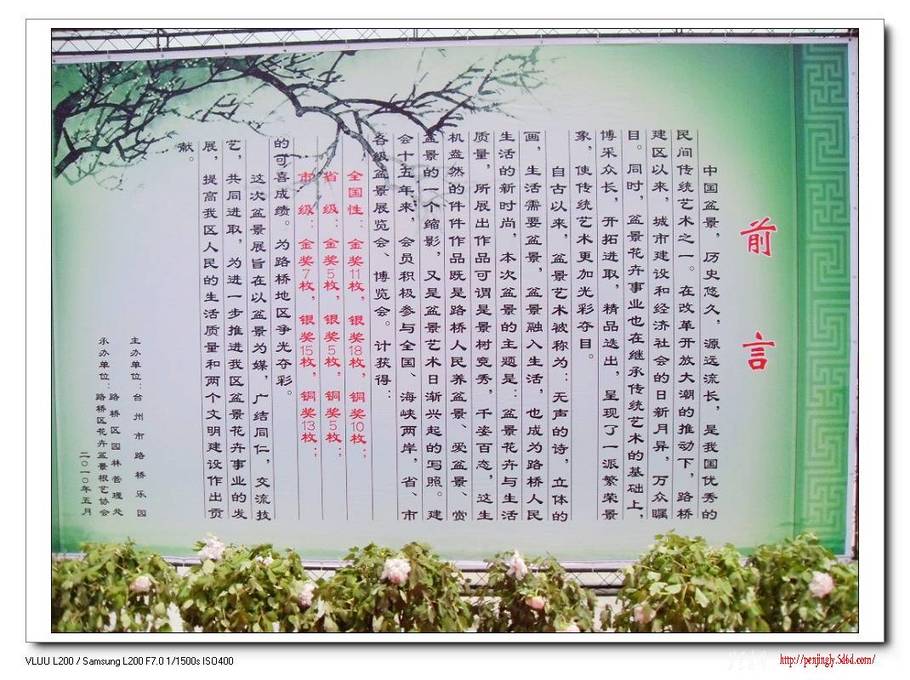 前言
中国盆景，历史悠久，源远流长，是我国优秀的
民间传统艺术之一。在改革开放大潮的推动下，路桥
建区以来，城市建设和经济社会的日新月异，万众瞩
目。同时，盆景花卉事业也在继承传统艺术的基础上，
博采众长，开拓进取，精品迭出，呈现了一派繁荣景
象，使传统艺术更加光彩夺目。
自古以来，盆景艺术被称为：无声的诗，立体的
画，生活需要盆景，盆景融入生活，也成为路桥人民
生活的新时尚，本次盆景的主题是：盆景花卉与生活
质量，所展出作品可谓是景树竞秀，千姿百态，这生
机盎然的件件作品既是路桥人民养盆景、爱盆景、赏
盆景的一个缩影，又是盆景艺术日渐兴起的写照。建
会十五年来，会员积极参与全国、海峡两岸，省、市
各级盆景展览会、博览会。计获得：
全国性：金奖11枚，银奖18枚，铜奖10枚；
省级：金奖5枚，银奖5枚，铜奖5枚；
市级：金奖7枚，银奖15枚，铜奖13枚；
的可喜成绩。为路桥地区争光夺彩。
这次盆景展旨在以盆景为媒，广结同仁，交流技
艺，共同进取，为进一步推进我区盆景花卉事业的发
展，提高我区人民的生活质量和两个文明建设作出贡
献。
主办单位：台州市路桥乐园
路桥区园林管理处
承办单位：路桥区花卉盆景根艺协会
二〇一〇年五月
VLUU L200 / Samsung L200 F7.0 1/1500s ISO400
http://penjingly.5d6d.com/